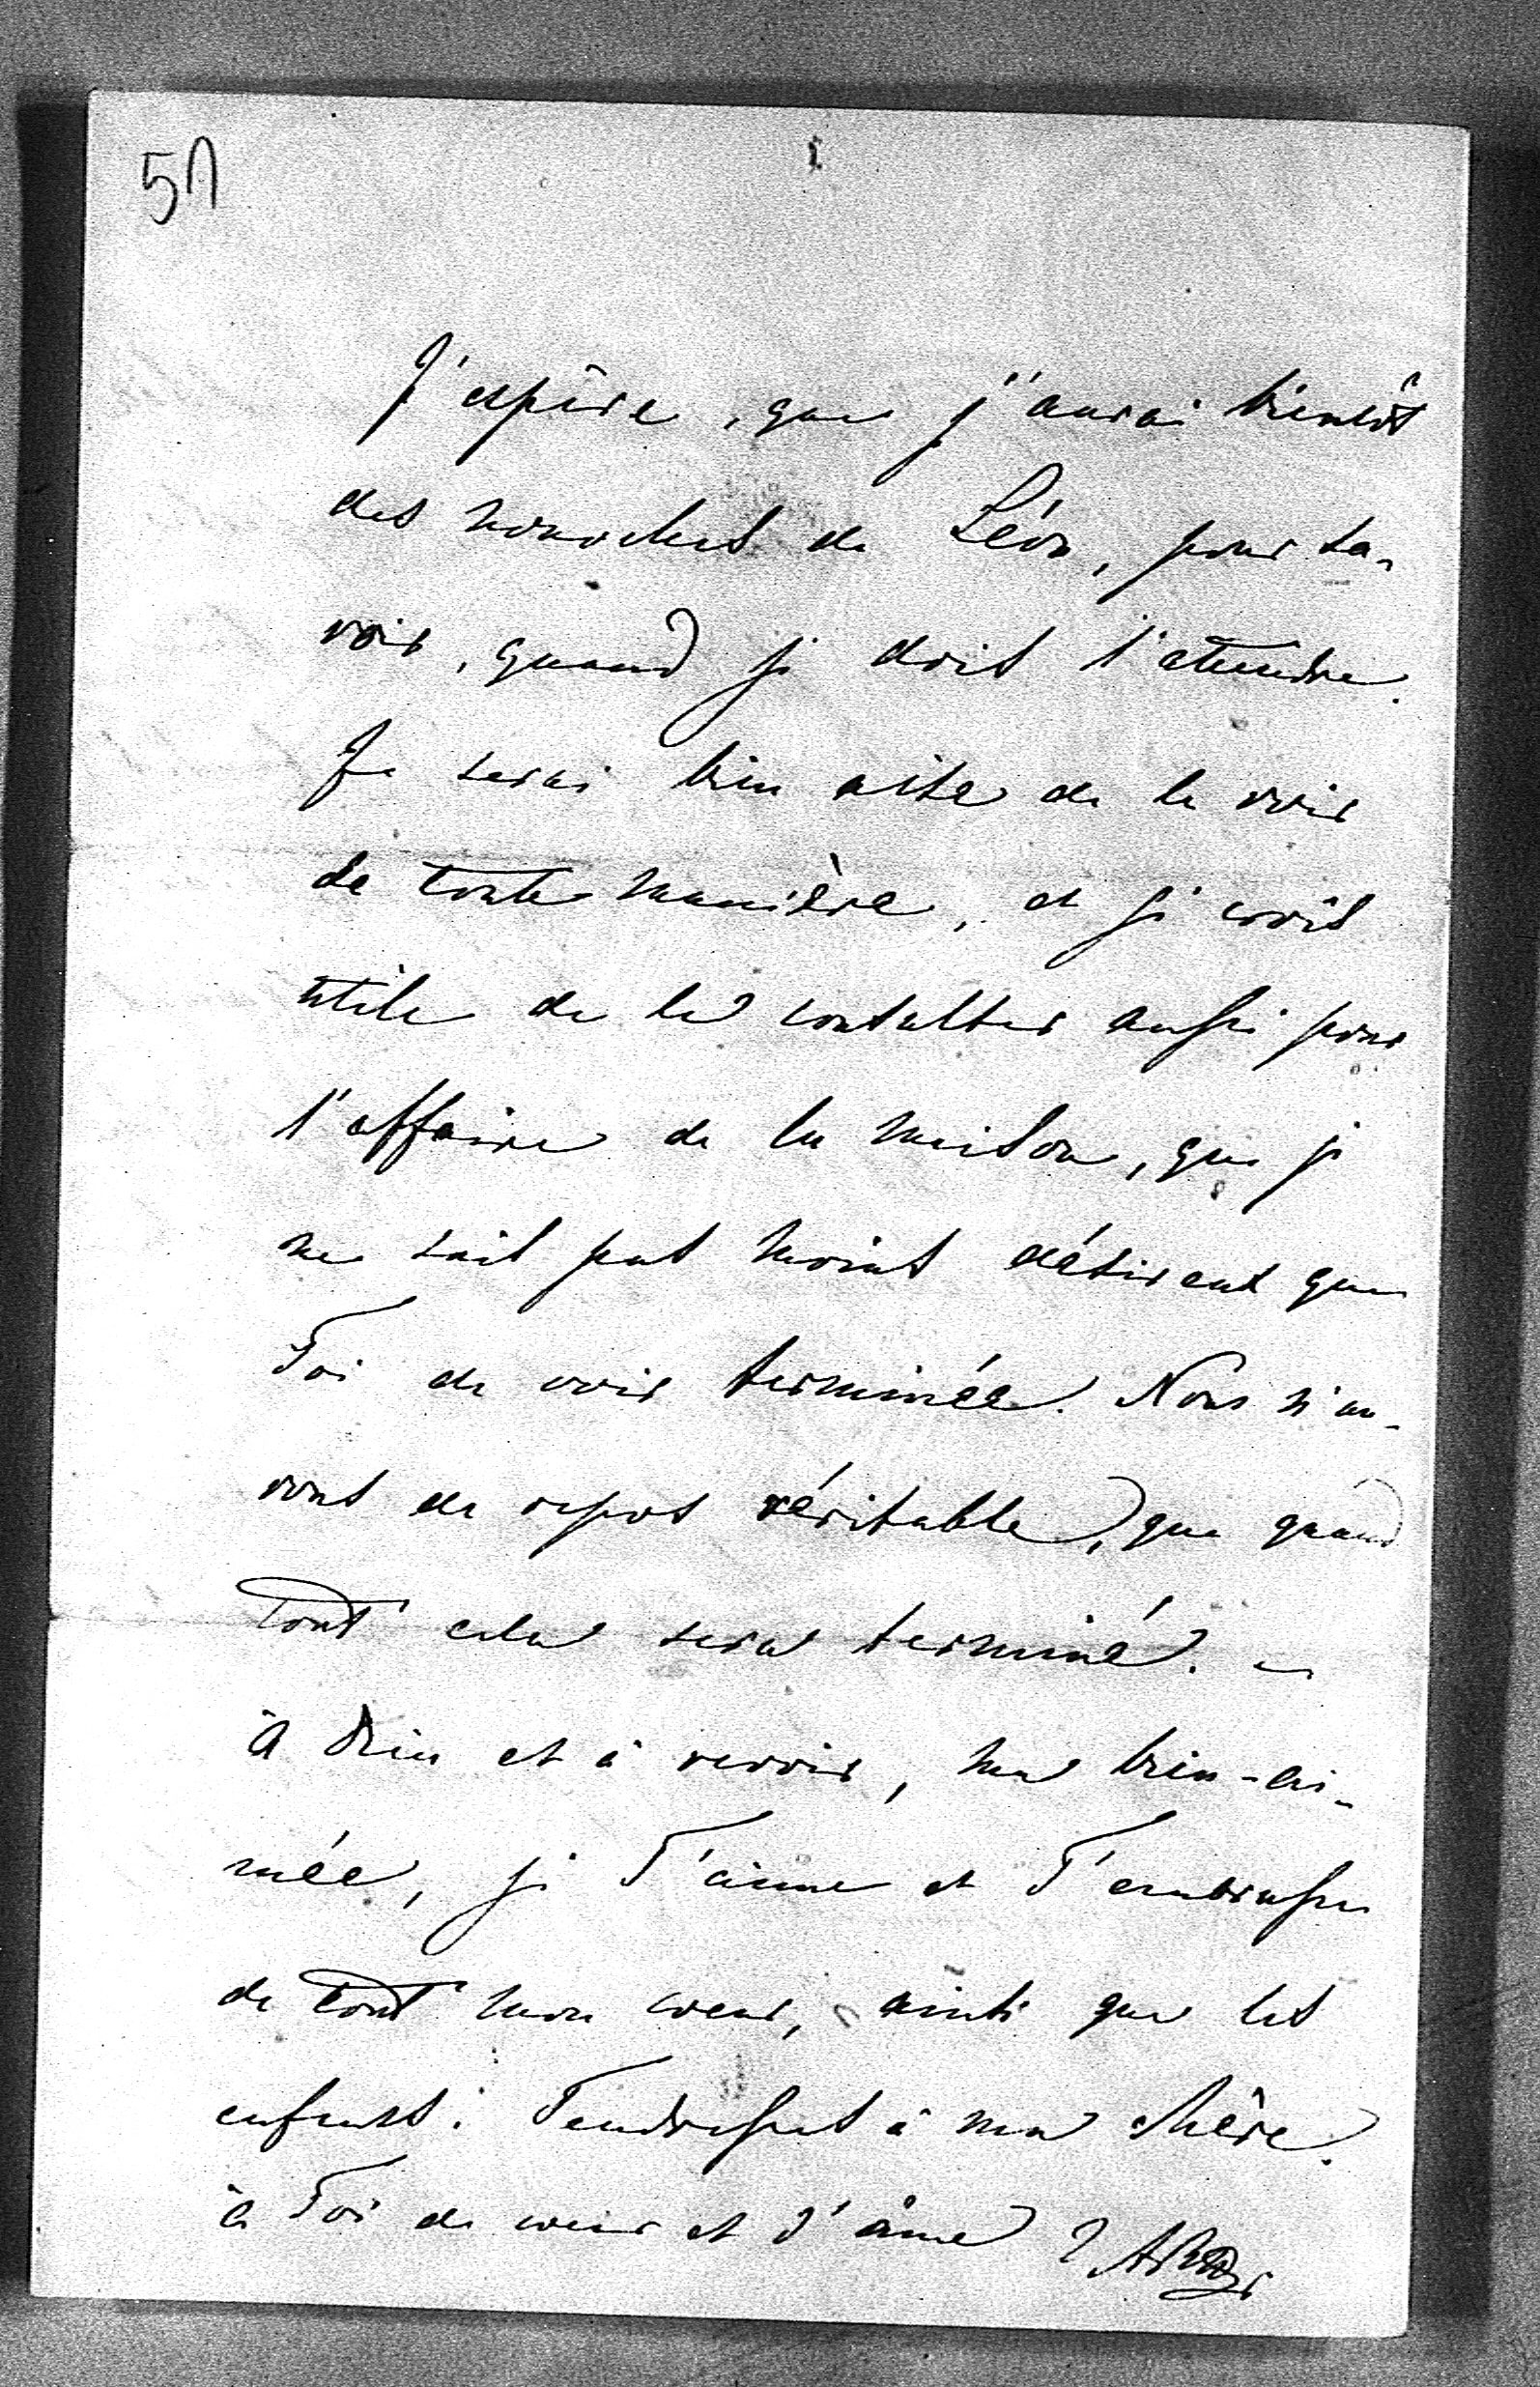 51
J'espère, que j'aurai bientôt
des nouvelles de Léon, pour sa-
voir, quand je dois l'attendre.
Je serai bien aise de le voir
de toute manière, et je crois
utile de le consulter aussi pour
l'affaire de la maison, que je
ne suis pas moins désireux que
Toi de voir terminée. Nous n'au-
rons de repos véritable, que quand
tout cela sera terminé. –
à Dieu et à revoir, ma bien-ai-
mée, je T'aime et T'embrasse
de tout mon coeur, ainsi que les
enfants. Tendresses à ma chère.
à Toi de coeur et d'âme